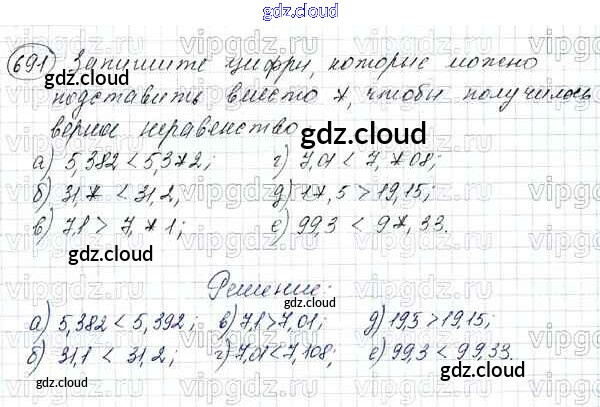 gdz.cloud
691 Запишите цифры, которые можно
подставить вместо *, чтобы получилось
верное неравенство
а) 5,382 < 5,3*2; г) 7,01 < 7,*08;
б) 31,* < 31,2; д) 1*,5 > 19,15;
в) 7,1 > 7,*1; е) 99,3 < 9*,33.
Решение:
а) 5,382 < 5,392; в) 7,1 > 7,01; д) 19,5 > 19,15;
б) 31,1 < 31,2; г) 7,01 < 7,108; е) 99,3 < 99,33.